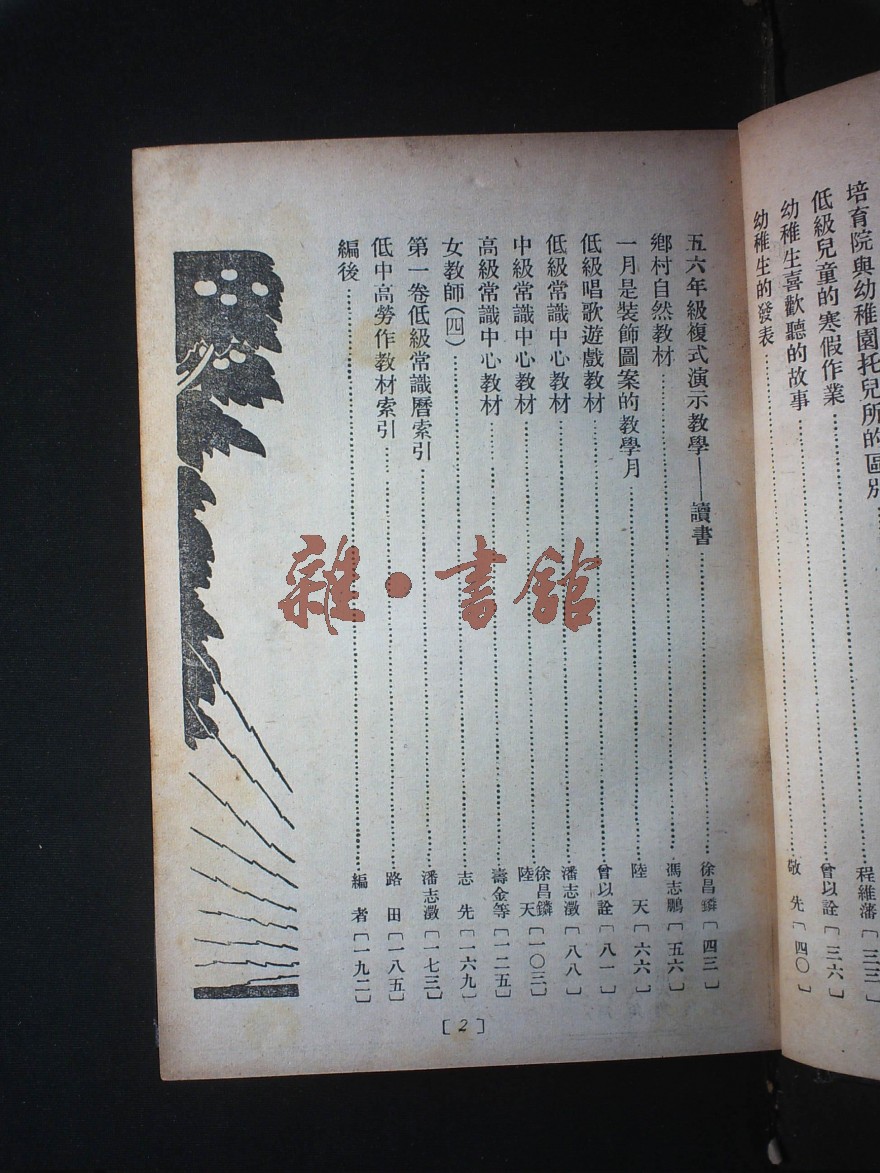 培育院與幼稚園托兒所的區別 程維藩〔三三〕
低級兒童的寒假作業 曾以詮〔三六〕
幼稚生喜歡聽的故事 敬先〔四〇〕
幼稚生的發表
五六年級複式演示教學——讀書 徐昌鏻〔四三〕
鄉村自然教材 馮志鵬〔五六〕
一月是裝飾圖案的教學月 陸天〔六六〕
低級唱歌遊戲教材 曾以詮〔八一〕
低級常識中心教材 潘志澂〔八八〕
中級常識中心教材 徐昌鏻 陸天〔一〇三〕
高級常識中心教材 壽金等〔一二五〕
女教師(四) 志先〔一六九〕
第一卷低級常識曆索引 潘志澂〔一七三〕
低中高勞作教材索引 路田〔一八五〕
編後 編者〔一九二〕
〔2〕
雜·書館